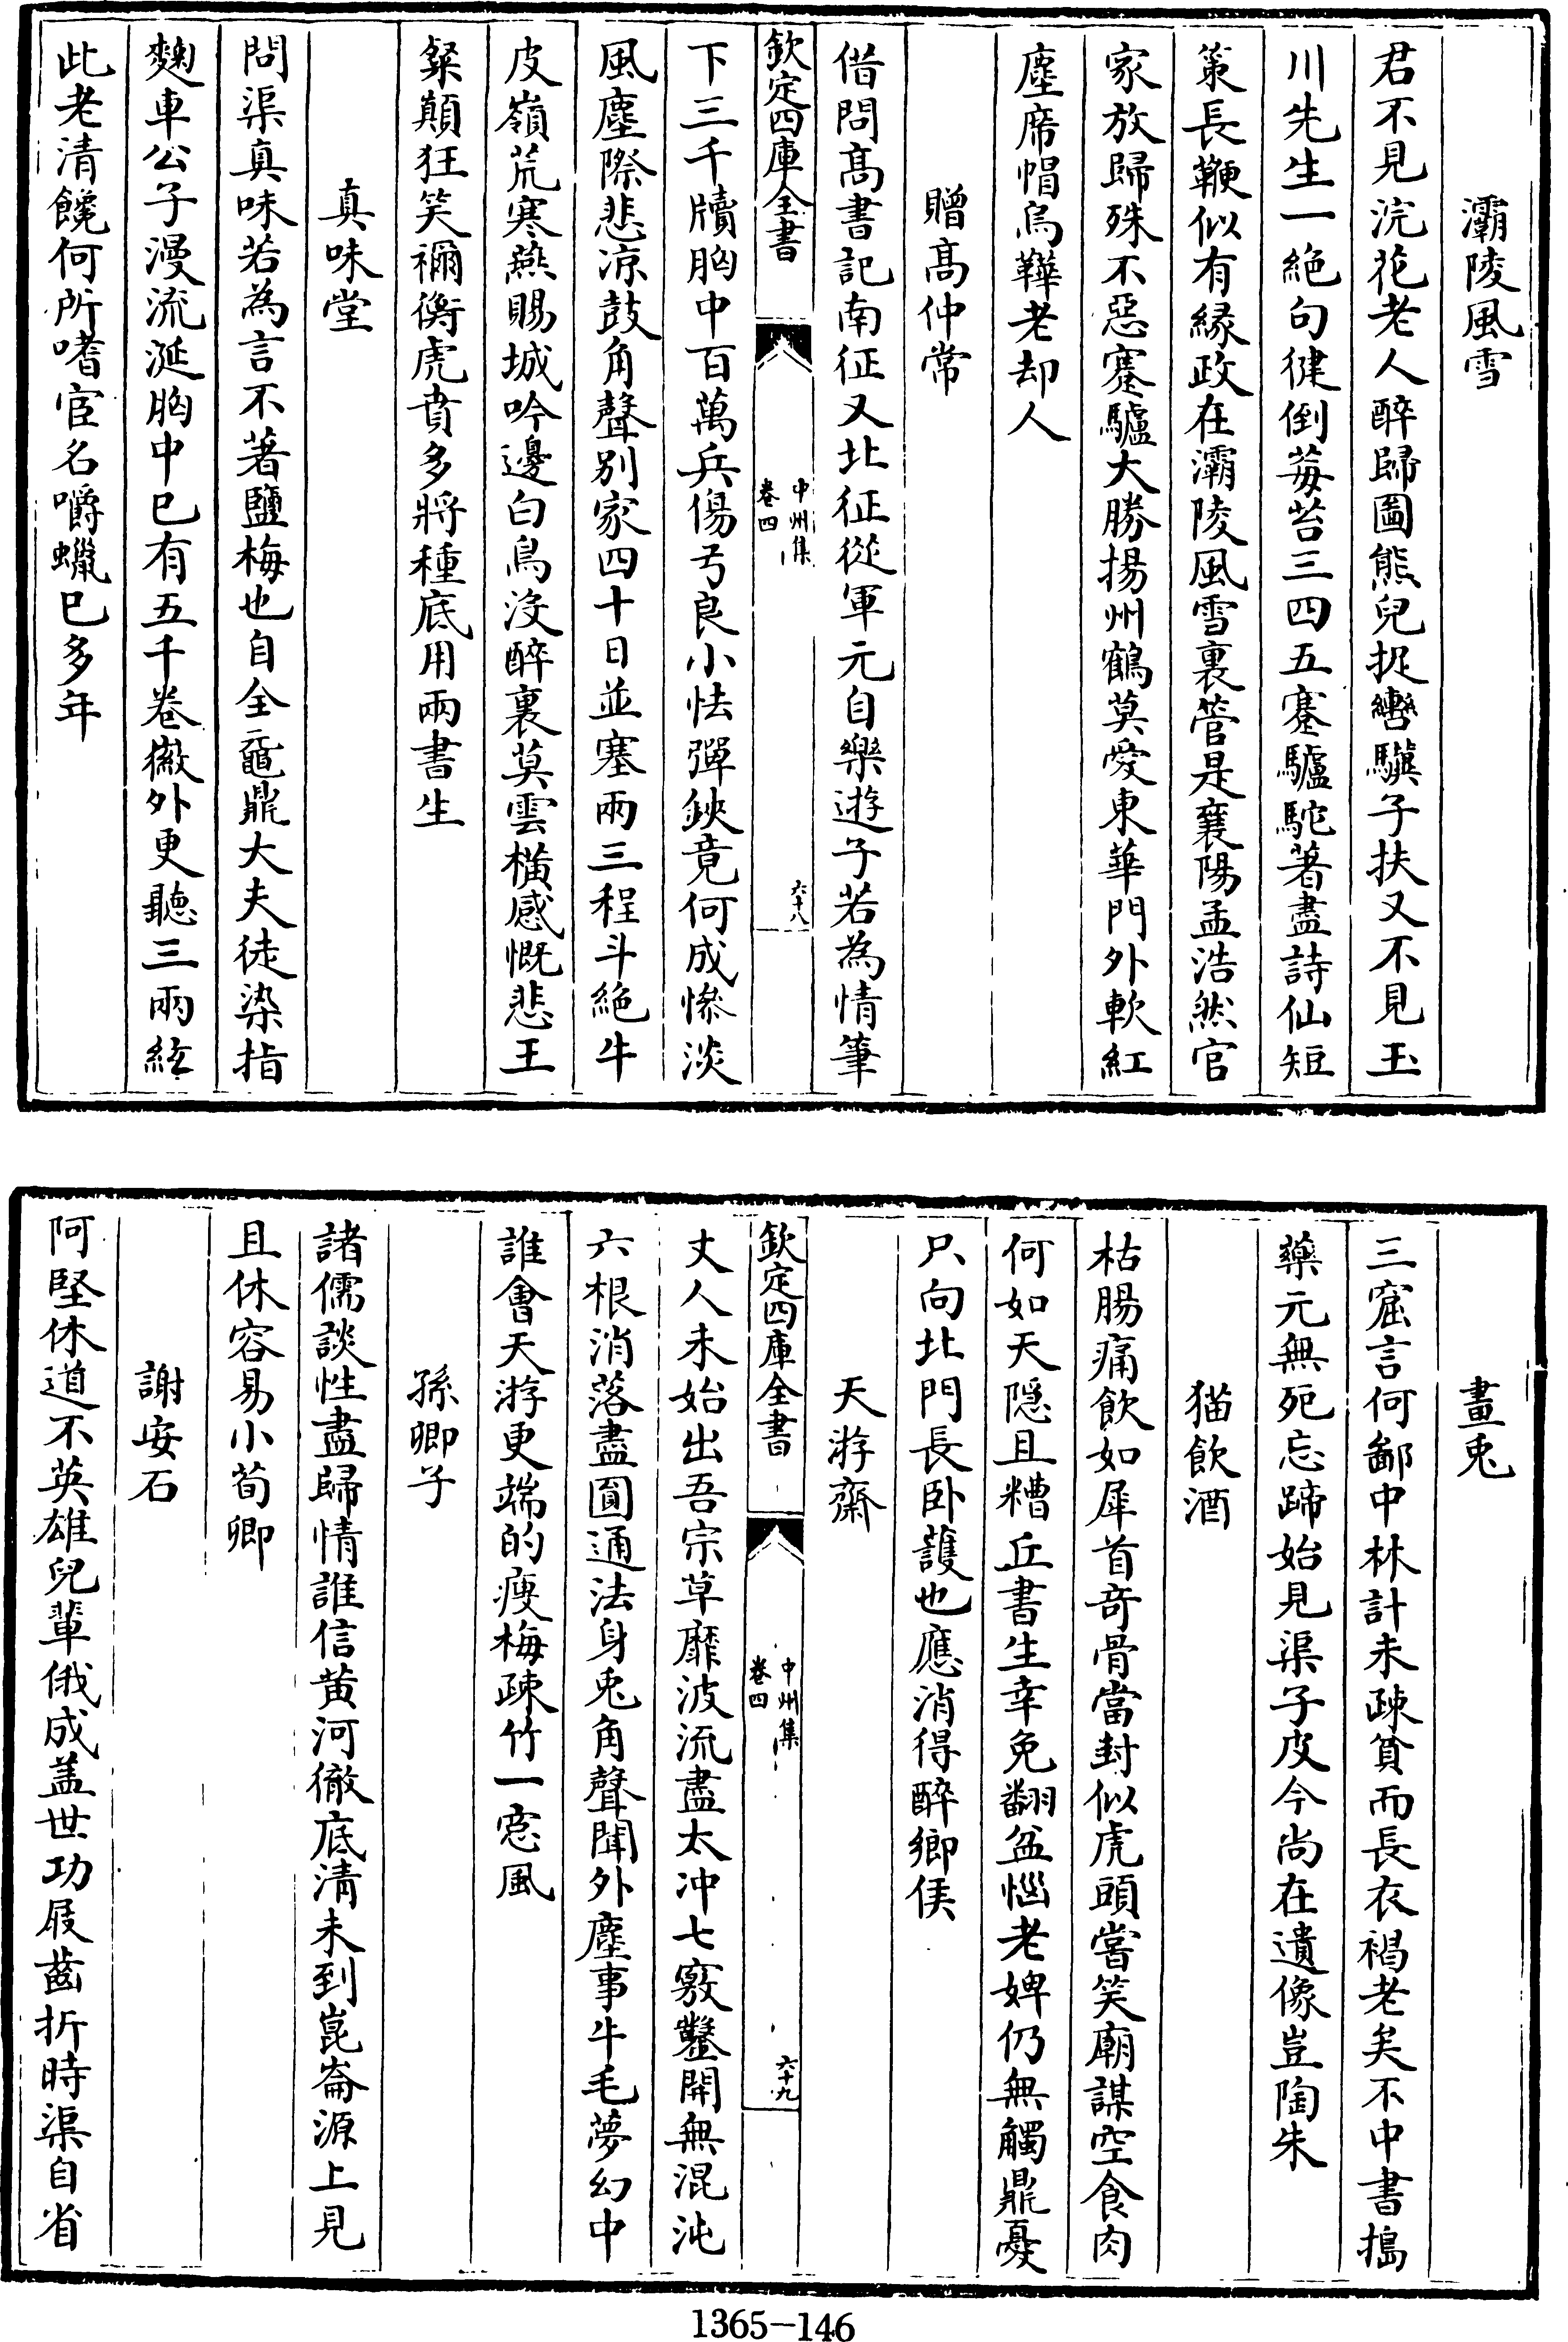 灞陵風雪
君不見浣花老人醉歸圖熊兒捉轡驥子扶又不見玉
川先生一絶句健倒莓苔三四五蹇驢駝著盡詩仙短
策長鞭似有縁政在灞陵風雪裏管是襄陽孟浩然官
家放歸殊不惡蹇驢大勝揚州鶴莫愛東華門外軟紅
塵席帽烏鞾老却人
贈髙仲常
借問髙書記南征又北征從軍元自樂遊子若為情筆
欽定四庫全書
中州集
卷四
六十八
下三千牘胸中百萬兵傷弓良小怯彈鋏竟何成慘淡
風塵際悲凉鼓角聲别家四十日並塞兩三程斗絶牛
皮嶺荒寒燕賜城吟邊白鳥没醉裏莫雲橫感慨悲王
粲顛狂笑禰衡虎賁多將種底用兩書生
真味堂
問渠真味若為言不著鹽梅也自全黿鼎大夫徒染指
麴車公子漫流涎胸中已有五千卷徽外更聽三兩絃
此老清饞何所嗜宦名嚼蠟已多年
畫兎
三窟言何鄙中林計未疎貧而長衣褐老矣不中書搗
藥元無死忘蹄始見渠子皮今尚在遺像豈陶朱
猫飲酒
枯腸痛飲如犀首奇骨當封似虎頭嘗笑廟謀空食肉
何如天隠且糟丘書生幸免翻盆惱老婢仍無觸鼎憂
只向北門長卧護也應消得醉鄉侯
天游齋
欽定四庫全書
中州集
卷四
六十九
丈人未始出吾宗草靡波流盡太冲七竅鑿開無混沌
六根消落盡圓通法身兎角聲聞外塵事牛毛夢幻中
誰會天游更端的瘦梅疎竹一窓風
孫卿子
諸儒談性盡歸情誰信黄河徹底清未到崑崙源上見
且休容易小荀卿
謝安石
阿堅休道不英雄兒輩俄成盖世功屐齒折時渠自省
1365-146